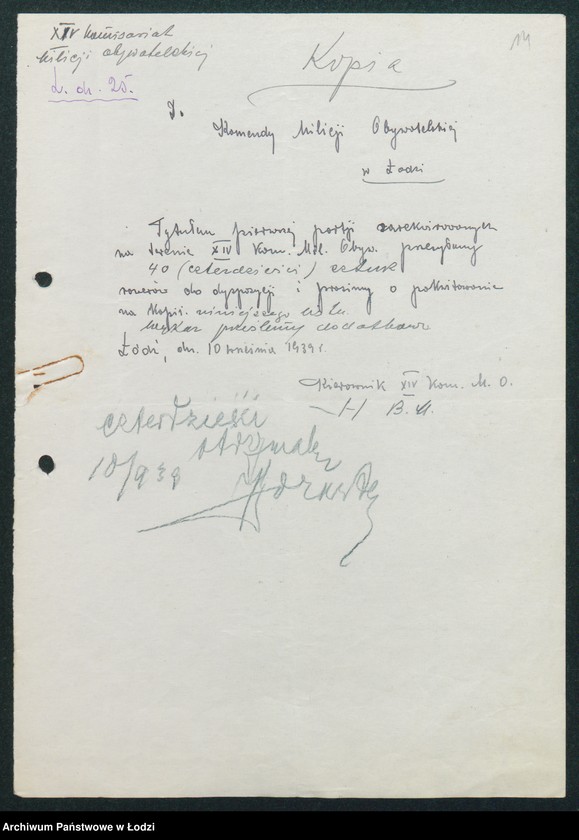 14
XIV Komisariat
Milicji Obywatelskiej
L. dn. 25.
Kopia
Do
Komendy Milicji Obywatelskiej
w Łodzi
Tytułem pierwszej partji zarekwirowanych
na terenie XIV Kom. Mil. Obyw. przesyłamy
40 (czterdzieści) sztuk
rowerów do dyspozycji i prosimy o pokwitowanie
na kopji niniejszego listu.
Wykaz prześlemy dodatkowo
Łódź, dn. 10 września 1939 r.
Kierownik XIV Kom. M. O.
czterdzieści
otrzymałem
10/9 39
Archiwum Państwowe w Łodzi